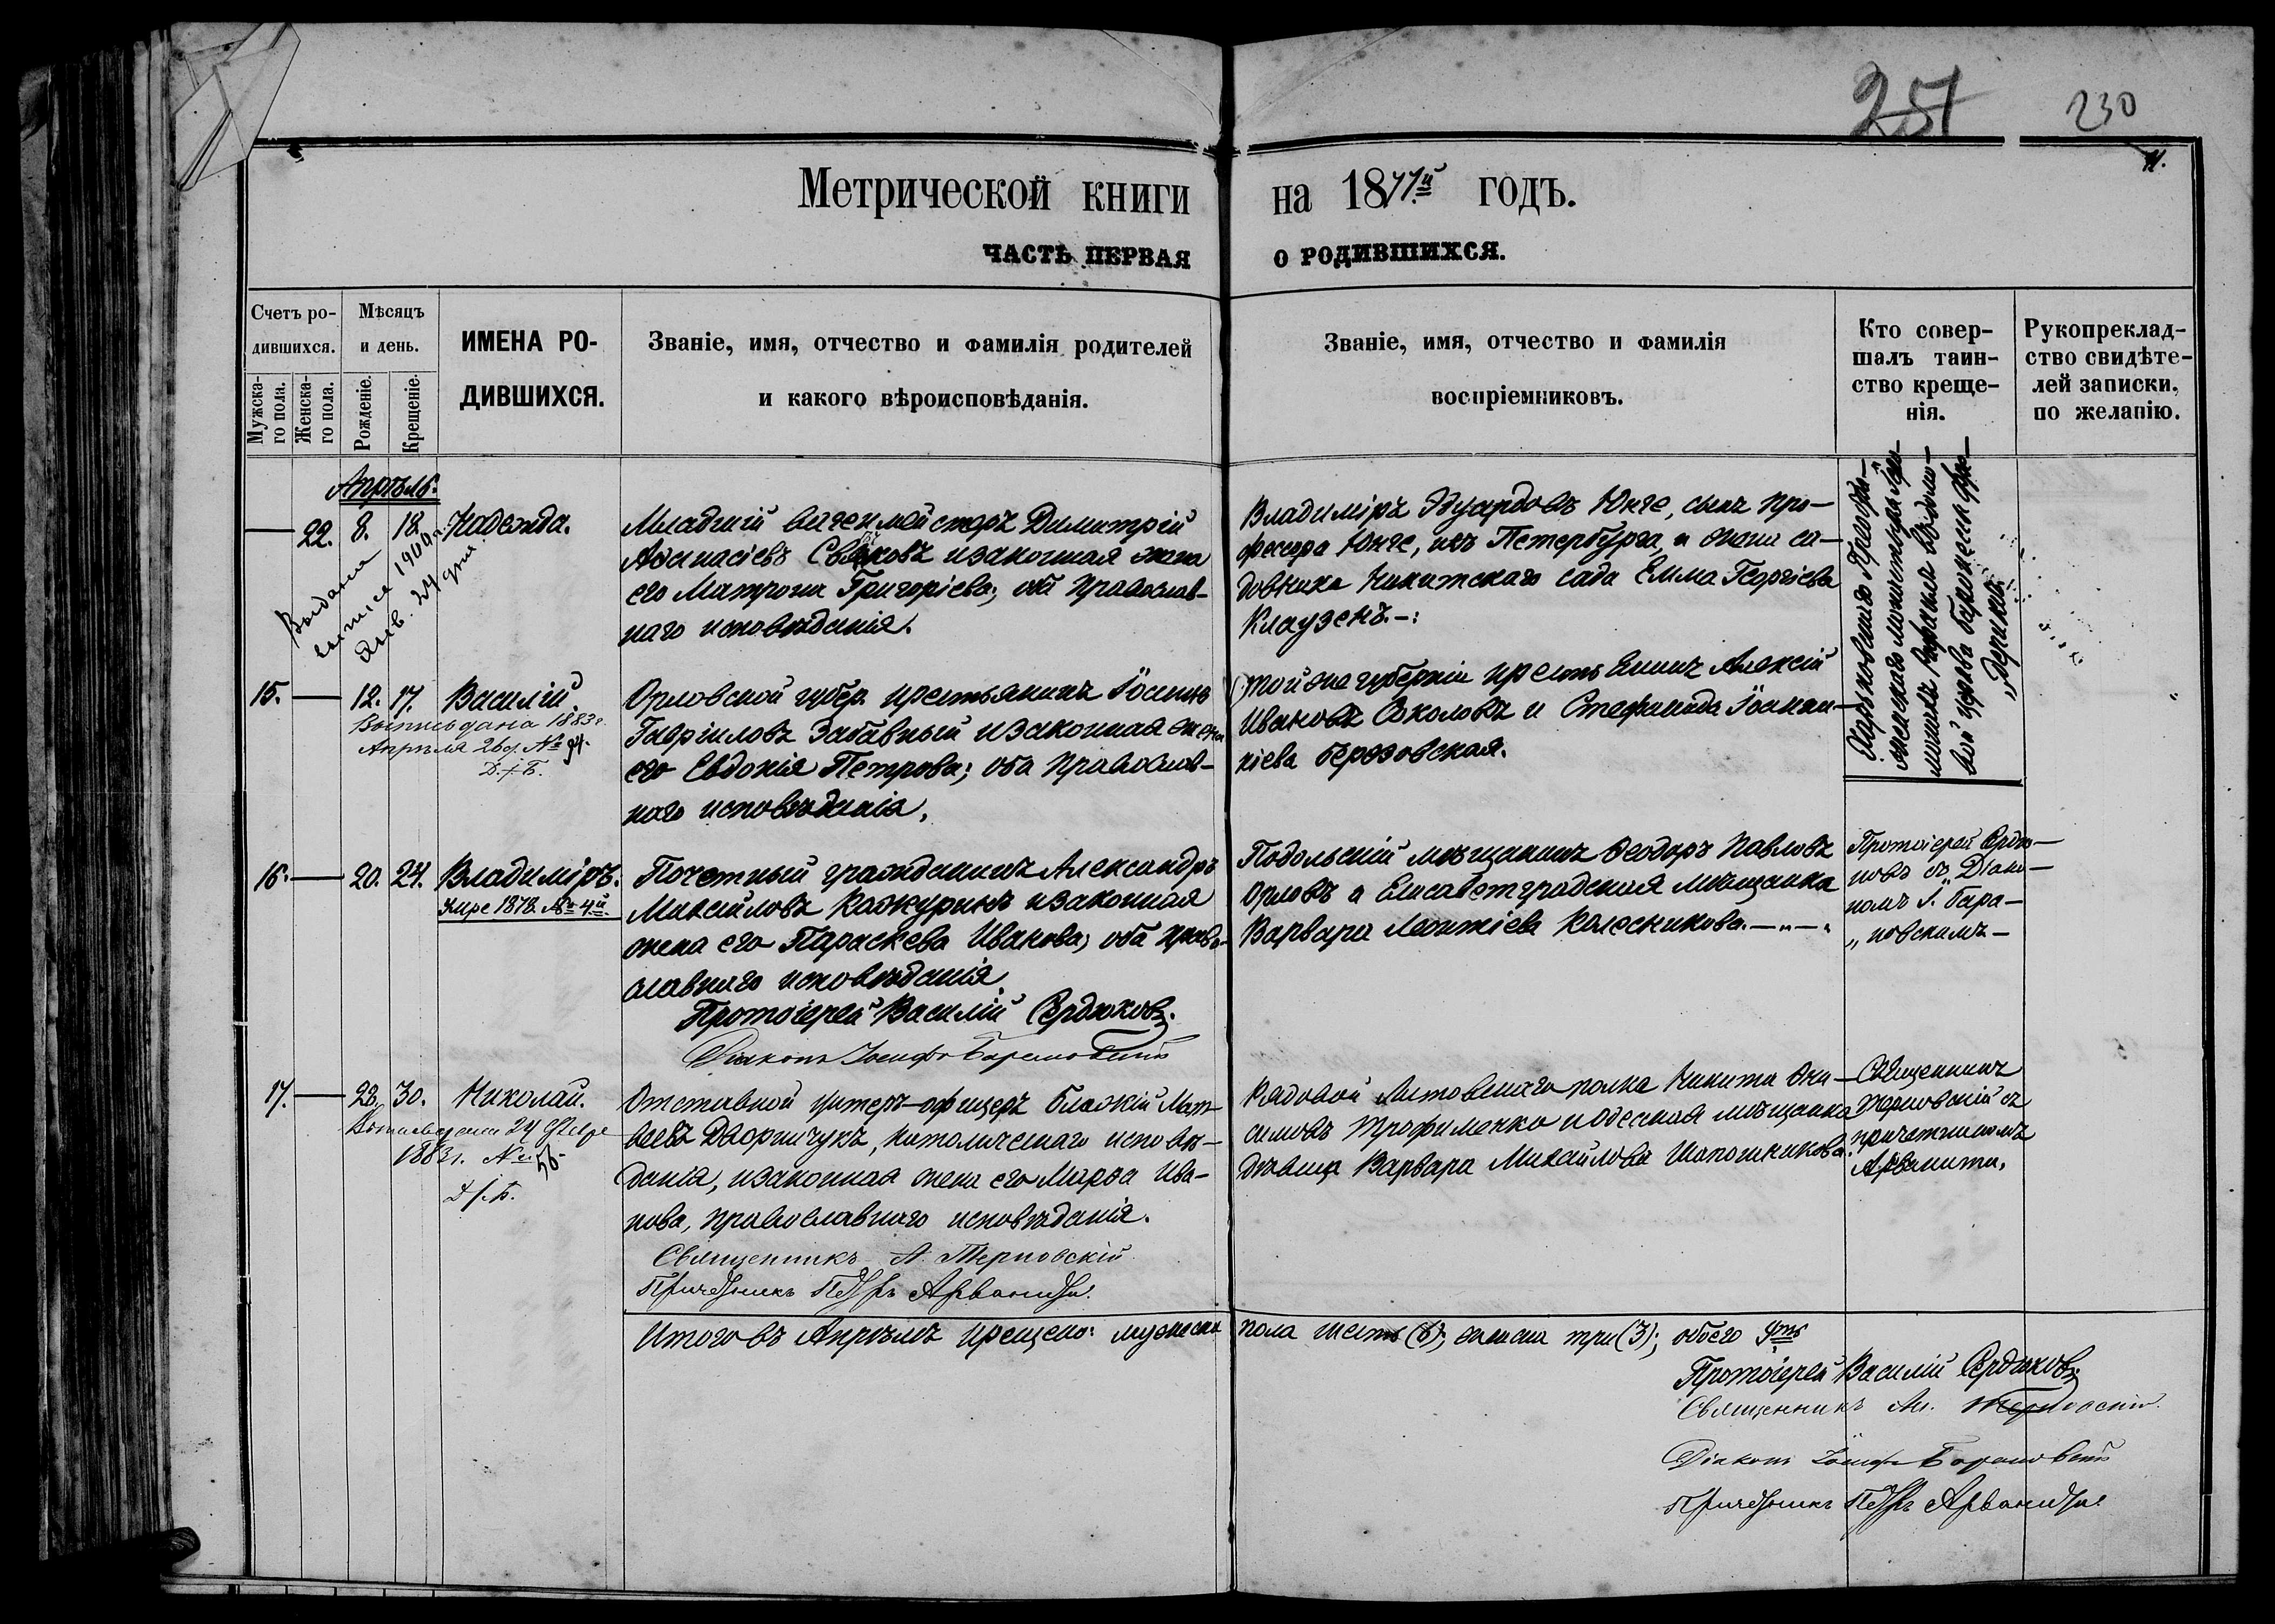 251 230
11.
Метрической книги на 1877.й годъ.
ЧАСТЬ ПЕРВАЯ О РОДИВШИХСЯ.
Счетъ ро-
дившихся.
Мужска-
го пола.
Женска-
го пола.
Мѣсяцъ
и день.
Рожденіе.
Крещеніе.
ИМЕНА РО-
ДИВШИХСЯ.
Званіе, имя, отчество и фамилія родителей
и какого вѣроисповѣданія.
Званіе, имя, отчество и фамилія
воспріемниковъ.
Кто совер-
шалъ таин-
ство креще-
нія.
Рукопреклад-
ство свидѣте-
лей записки,
по желанію.
Апрѣль:
22. 8. 18. Надежда.
Выдана
1900 г.
24 дня
Младшій вагенмейстеръ Димитрій
Аѳанасіевъ и законная жена
его Матрона Григоріева; оба православ-
наго исповѣданія.
Владиміръ Эдуардовъ Юнге, сынъ про-
фессора Юнге, изъ Петербурга, и жена са-
довника Никитскаго сада Емма Георгіева
Клаузенъ.-:
15. 12. 17. Василій.
Выпись дана 1883 г.
Апрѣля 26 д. №
Орловской губер. крестьянинъ
Гавріиловъ Забавный и законная жена
его Евдокія Петрова; оба православ-
наго исповѣданія.
Той же губерніи крестьянинъ Алексій
Ивановъ Соколовъ и Стефанида
Березовская.
16. 20. 24. Владиміръ.
Умре 1878. № 4й.
Почетный гражданинъ Александръ
Михайловъ Кожуринъ и законная
жена его Параскева Иванова; оба право-
славнаго исповѣданія.
Протоіерей Василій Сердюковъ.
Діаконъ Іосифъ
Подольскій мѣщанинъ Ѳеодоръ Павловъ
Орловъ и Елисаветградская мѣщанка
Варвара Леонтіева Колесникова.
Протоіерей Сердю-
ковъ съ Діако-
номъ І. Бара-
„новскимъ-
17. 28. 30. Николай.
24
1883 г. № 56
Отставной унтеръ-офицеръ Матѳ-
веевъ Дворничукъ, католическаго исповѣ-
данія, и законная жена его Марѳа Ива-
нова, православнаго исповѣданія.
Священникъ А. Терновскій
Причетникъ Петръ Арванити.
Рядовой Литовскаго полка Никита Они-
симовъ Трофименко и одесская мѣщанка
дѣвица Варвара Михайлова Шапошникова.
Священникъ
Терновскій съ
причетникомъ
Арванити.
Итого въ Апрѣлѣ крещено: мужеска пола шесть (6); женска три (3); обоего 9ть
Протоіерей Василій Сердюковъ.
Священникъ Ал. Терновскій.
Діаконъ Іосифъ
Причетникъ Петръ Арванити.